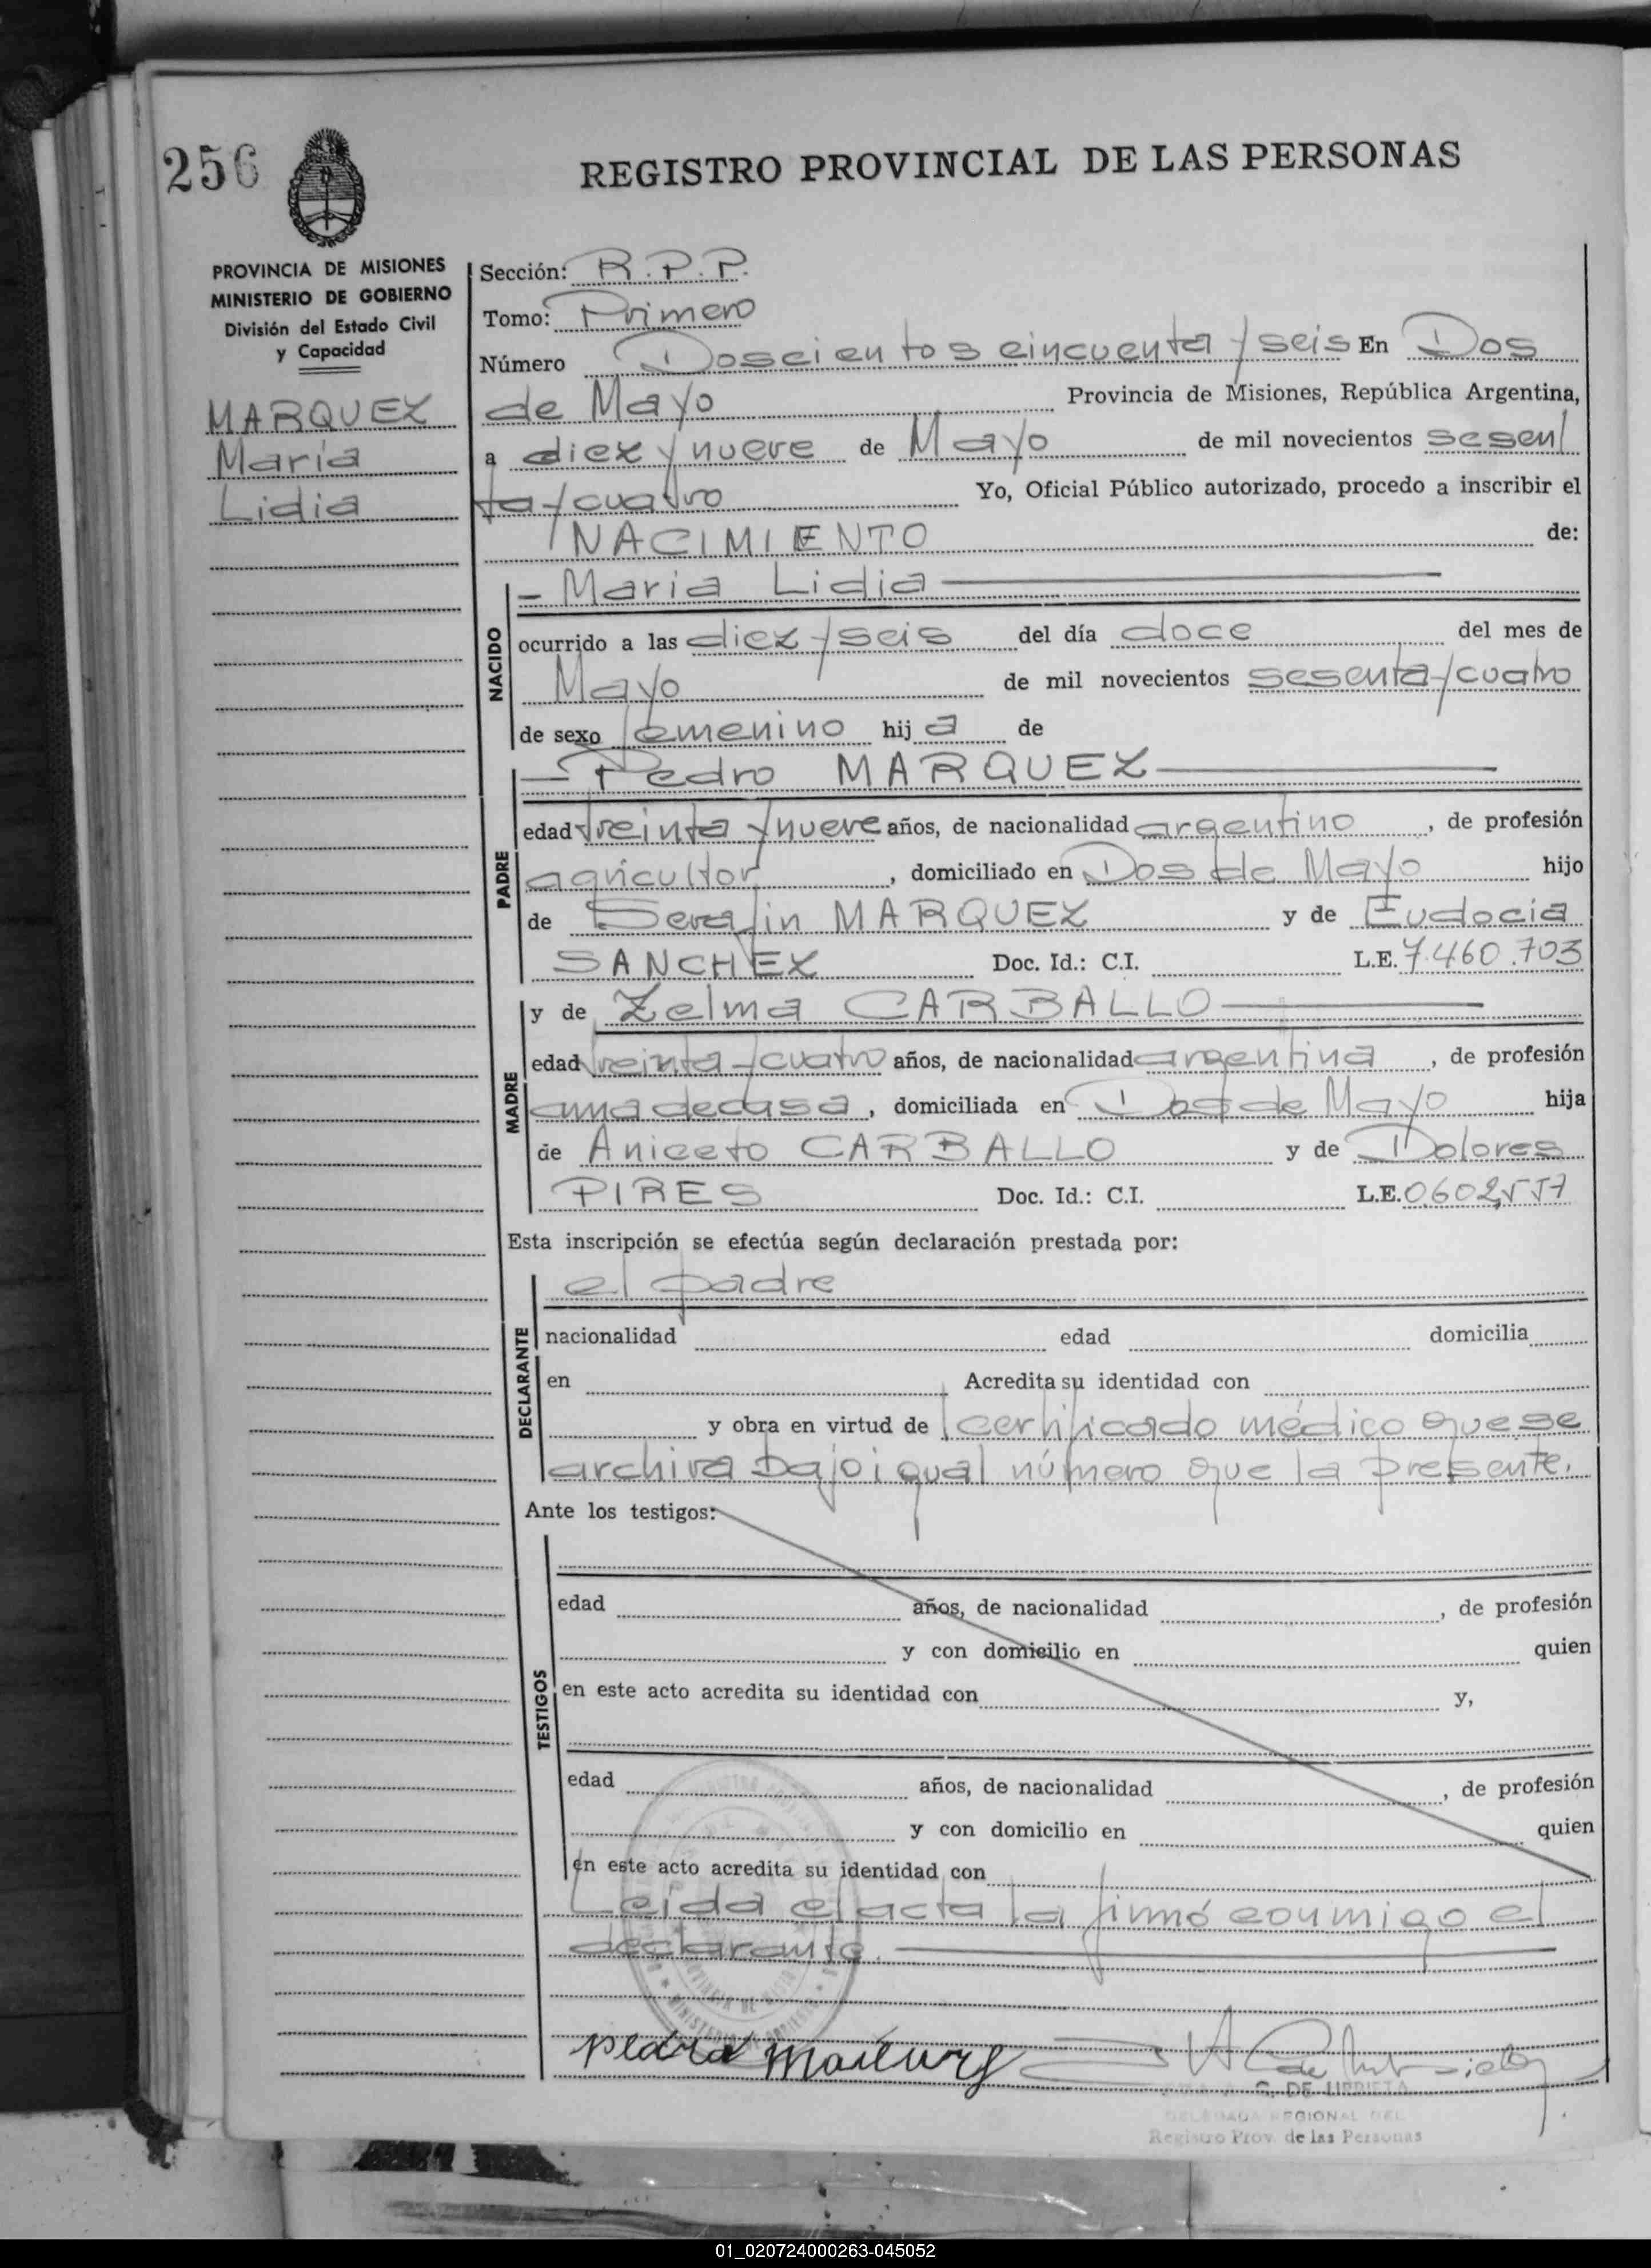 256
REGISTRO PROVINCIAL DE LAS PERSONAS
PROVINCIA DE MISIONES
MINISTERIO DE GOBIERNO
División del Estado Civil
y Capacidad
MARQUEZ
María
Lidia
Sección: R.P.P.
Tomo: Primero
Número Doscientos cincuenta y seis En Dos
de Mayo Provincia de Misiones, República Argentina,
a diez y nueve de Mayo de mil novecientos sesen
ta y cuatro Yo, Oficial Público autorizado, procedo a inscribir el
NACIMIENTO de:
NACIDO
- Maria Lidia
ocurrido a las diez y seis del día doce del mes de
Mayo de mil novecientos sesenta y cuatro
de sexo femenino hij a de
PADRE
Pedro MARQUEZ
edad treinta y nueve años, de nacionalidad argentino, de profesión
agricultor, domiciliado en Dos de Mayo hijo
de Serafin MARQUEZ y de Eudocia
SANCHEZ Doc. Id.: C.I. L.E. 7.460.703
MADRE
y de Zelma CARBALLO
edad treinta y cuatro años, de nacionalidad argentina, de profesión
ama de casa, domiciliada en Dos de Mayo hija
de Aniceto CARBALLO y de Dolores
PIRES Doc. Id.: C.I. L.E.
Esta inscripción se efectúa según declaración prestada por:
DECLARANTE
el padre
nacionalidad edad domicilia
en Acredita su identidad con
y obra en virtud de certificado médico que se
archiva bajo igual número que la presente.
Ante los testigos:
TESTIGOS
edad años, de nacionalidad , de profesión
y con domicilio en quien
en este acto acredita su identidad con y,
edad años, de nacionalidad , de profesión
y con domicilio en quien
en este acto acredita su identidad con
Leida el acta la firmó conmigo el
declarante.
DE URRIETA
REGIONAL DEL
Registro Prov. de las Personas
01_020724000263-045052